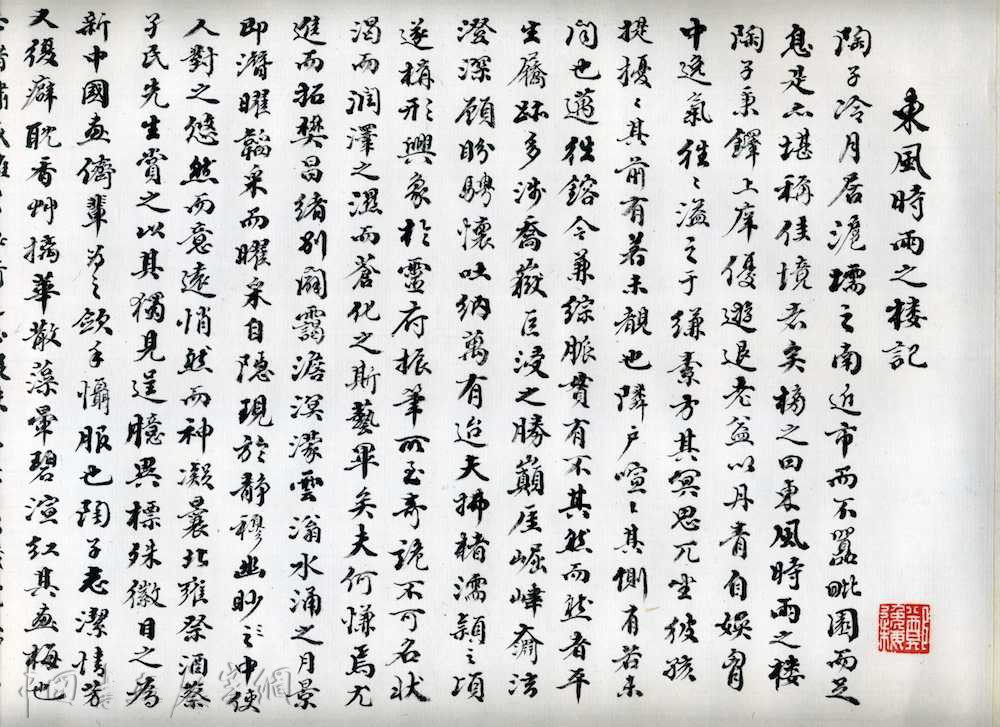 東風時雨之楼記
陶子冷月居滬壖之南近市而不囂毗園而足
息是亦堪稱佳境者矣榜之曰東風時雨之楼
陶子秉鐸上庠優遊退老益以丹青自娱胷
中逸氣往〻溢之于縑素方其冥思兀坐彼孩
提擾〻其前有若未覩也隣户喧〻其側有若未
聞也邁往鎔今兼綜脈貫有不其然而然者平
生屬跡多涉喬嶽巨浸之勝巔厓崛峍瀹
澄深顧盼騁懷吐納萬有迨夫拂楮濡穎之頃
遂構形興象於靈府振筆所至奇詭不可名状
渴而潤澤之濕而蒼化之斯藝畢矣夫何慊焉尤
進而拓樊昌緒别闢靄澹溟濛雲滃水涌之月景
即濳曜韜采而曜采自隐現於静穆幽眇〻之中使
人對之悠然而意遠悄然而神凝曩北雍祭酒蔡
孑民先生賞之以其獨見逞臆異標殊徽目之為
新中國畫儕輩為之斂手懾服也陶子志潔情芳
又復癖耽香艸摛華散藻暈碧渲紅其画梅也
中國 網